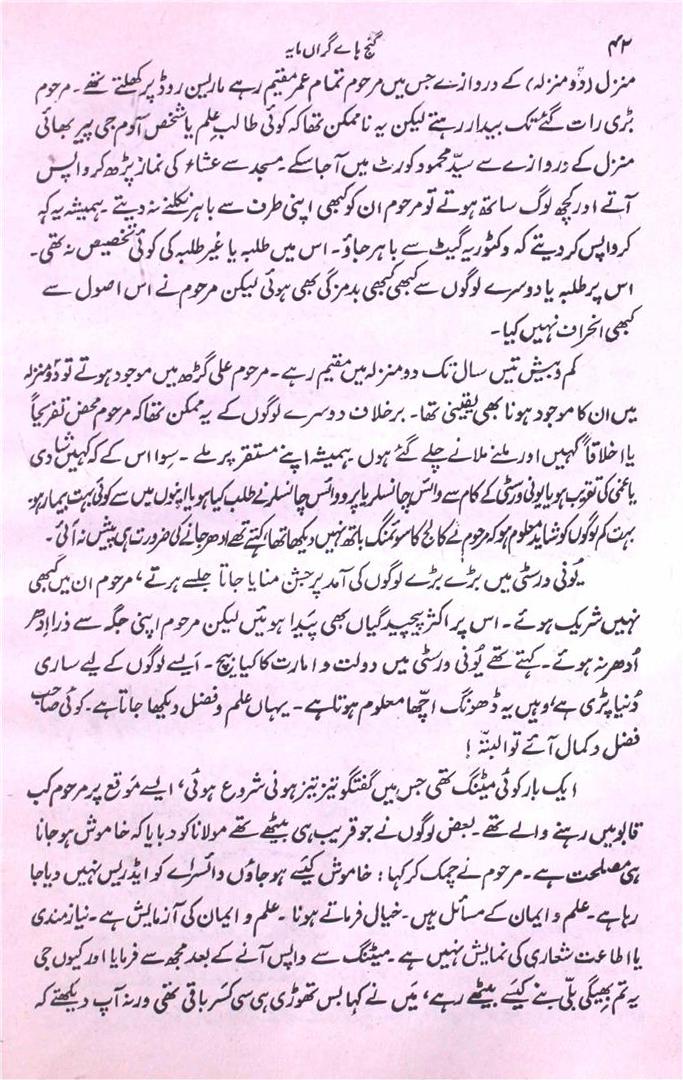 ۴۲
گنج ہاے گراں مایہ
منزل (دو منزلہ) کے دروازے جس میں مرحوم تمام عمر مقیم رہے ماریسن روڈ پر کھلتے تھے۔ مرحوم
بڑی رات گئے تک بیدار رہتے لیکن یہ ناممکن تھا کہ کوئی طالب علم یا شخص آدم جی پیر بھائی
منزل کے دروازے سے سیّد محمود کورٹ میں آ جا سکے۔ مسجد سے عشاء کی نماز پڑھ کر واپس
آتے اور کچھ لوگ ساتھ ہوتے تو مرحوم ان کو کبھی اپنی طرف سے باہر نکلنے نہ دیتے۔ ہمیشہ یہ کہہ
کر واپس کر دیتے کہ وکٹوریہ گیٹ سے باہر جاؤ۔ اس میں طلبہ یا غیر طلبہ کی کوئی تخصیص نہ تھی۔
اس پر طلبہ یا دوسرے لوگوں سے کبھی کبھی بدمزگی بھی ہوئی لیکن مرحوم نے اس اصول سے
کبھی انحراف نہیں کیا۔
کم و بیش تیس سال تک دو منزلہ میں مقیم رہے۔ مرحوم علی گڑھ میں موجود ہوتے تو دو منزلہ
میں ان کا موجود ہونا بھی یقینی تھا۔ برخلاف دوسرے لوگوں کے یہ ممکن تھا کہ مرحوم محض تفریحاً
یا اخلاقاً کہیں اور ملنے ملانے چلے گئے ہوں ہمیشہ اپنے مستقر پر ملے۔ سِوا اس کے کہ کہیں شادی
یا غمی کی تقریب ہو یا یونی ورسٹی کے کام سے وائس چانسلر یا پرو وائس چانسلر نے طلب کیا ہو یا اپنوں میں سے کوئی بہت بیمار ہو۔
بہت کم لوگوں کو شاید معلوم ہو کہ مرحوم نے کالج کا سوئمنگ باتھ نہیں دیکھا تھا کہتے تھے اُدھر جانے کی ضرورت ہی پیش نہ آئی۔
یُونی ورسٹی میں بڑے بڑے لوگوں کی آمد پر جشن منایا جاتا جلسے ہوتے، مرحوم ان میں کبھی
نہیں شریک ہوئے۔ اس پر اکثر پیچیدگیاں بھی پَیدا ہوئیں لیکن مرحوم اپنی جگہ سے ذرا اِدھر
اُدھر نہ ہوئے۔ کہتے تھے یُونی ورسٹی میں دولت و امارت کا کیا بیچ۔ اَیسے لوگوں کے لیے ساری
دُنیا پڑی ہے، وہیں یہ ڈھونگ اچّھا معلوم ہوتا ہے۔ یہاں علم و فضل دیکھا جاتا ہے۔ کوئی صاحب
فضل و کمال آئے تو البتہّ!
ایک بار کوئی میٹنگ تھی جس میں گفتگو تیز تیز ہونی شروع ہوئی، ایسے مَوقع پر مرحوم کب
قابو میں رہنے والے تھے۔ بعض لوگوں نے جو قریب ہی بیٹھے تھے مولانا کو دبایا کہ خاموش ہو جانا
ہی مصلحت ہے۔ مرحوم نے چمک کر کہا: خاموش کیَسے ہو جاؤں وائسراے کو ایڈریس نہیں دیا جا
رہا ہے۔ علم و ایمان کے مسائل ہیں۔ خیال فرماتے ہونا۔ علم و ایمان کی آزمایش ہے۔ نیازمندی
یا اطاعت شعاری کی نمایش نہیں ہے۔ میٹنگ سے واپس آنے کے بعد مجھ سے فرمایا اور کیوں جی
یہ تم بھیگی بلّی بنے کیَسے بیٹھے رہے، مَیں نے کہا بس تھوڑی ہی سی کسَر باقی تھی ورنہ آپ دیکھتے کہ